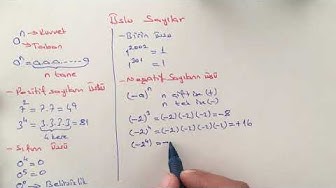 Üslü Sayılar
n → Kuvvet
a → Taban
aⁿ = a.a.......a
n tane
- Pozitif sayıların Üssü
7² = 7.7 = 49
3⁴ = 3.3.3.3 = 81
4 kere
- Sıfırın Üssü
0⁴ = 0
0⁵ = 0
0⁰ = Belirsizlik
- Birin Üssü
1²⁰⁰² = 1
1²⁰¹ = 1
- Negatif Sayıların üssü
(-a)ⁿ n çift ise (+)
n tek ise (-)
(-2)³ = (-2)(-2)(-2) = -8
(-2)⁴ = (-2)(-2)(-2)(-2) = +16
(-2⁴) = -